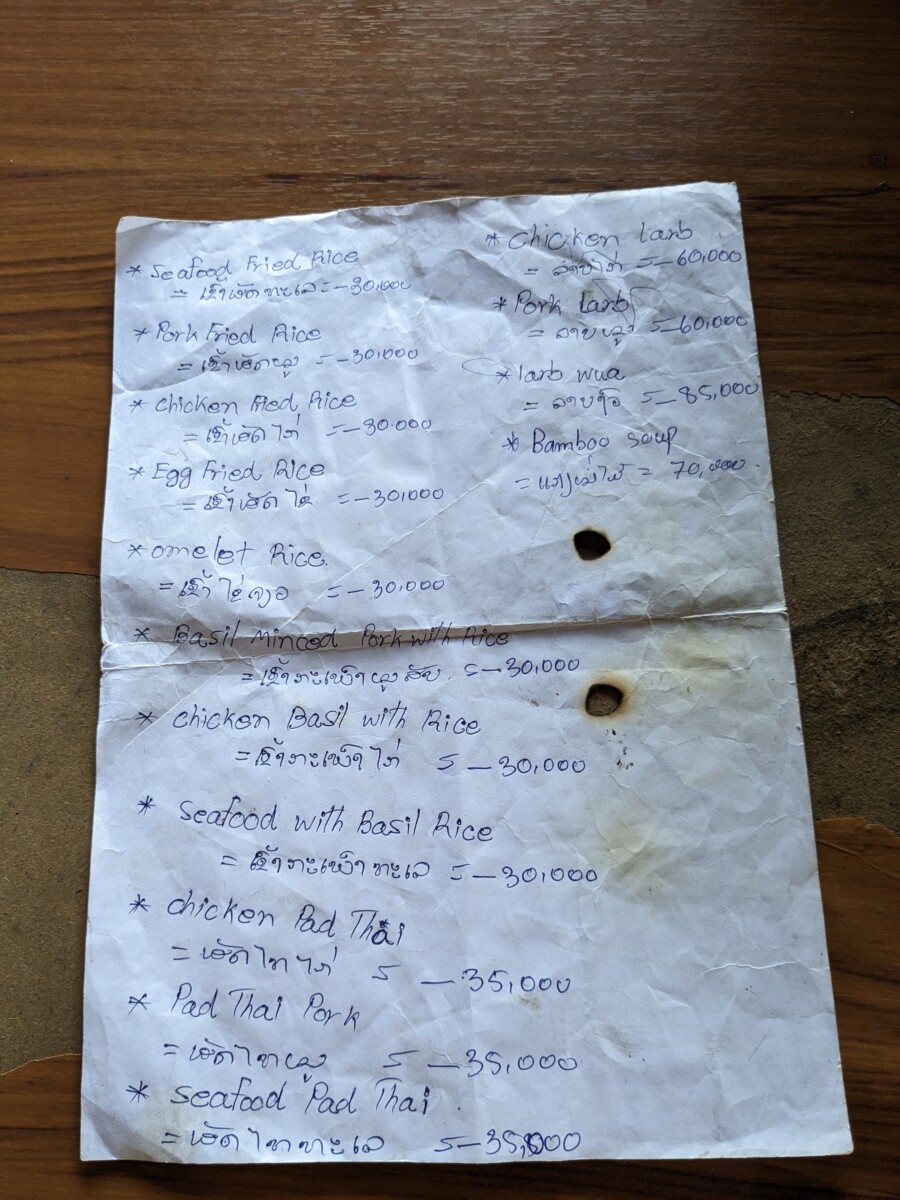 * Seafood Fried Rice
= ເຂົ້າຜັດທະເລ = -30,000
* Pork Fried Rice
= ເຂົ້າຜັດໝູ = -30,000
* chicken Fied Rice
= ເຂົ້າຜັດໄກ່ = -30.000
* Egg Fried Rice
= ເຂົ້າຜັດໄຂ່ = -30,000
* omelet Rice.
= ເຂົ້າໄຂ່ຈຽວ = -30,000
* Basil Minced Pork with Rice
= ເຂົ້າກະເພົາໝູສັບ. = -30,000
* chicken Basil with Rice
= ເຂົ້າກະເພົາໄກ່ = -30,000
* seafood with Basil Rice
= ເຂົ້າກະເພົາທະເລ = -30,000
* chicken Pad Thai
= ຜັດໄທໄກ່ = -35,000
* Pad Thai Pork
= ຜັດໄທໝູ = -35,000
* seafood Pad Thai
= ຜັດໄທທະເລ = -35,000
* chicken larb
= ລາບໄກ່ = -60,000
* Pork larb
= ລາບໝູ = -60,000
* larb wua
= ລາບງົວ = -85,000
* Bamboo soup
= ແກງໜໍ່ໄມ້ = 70,000